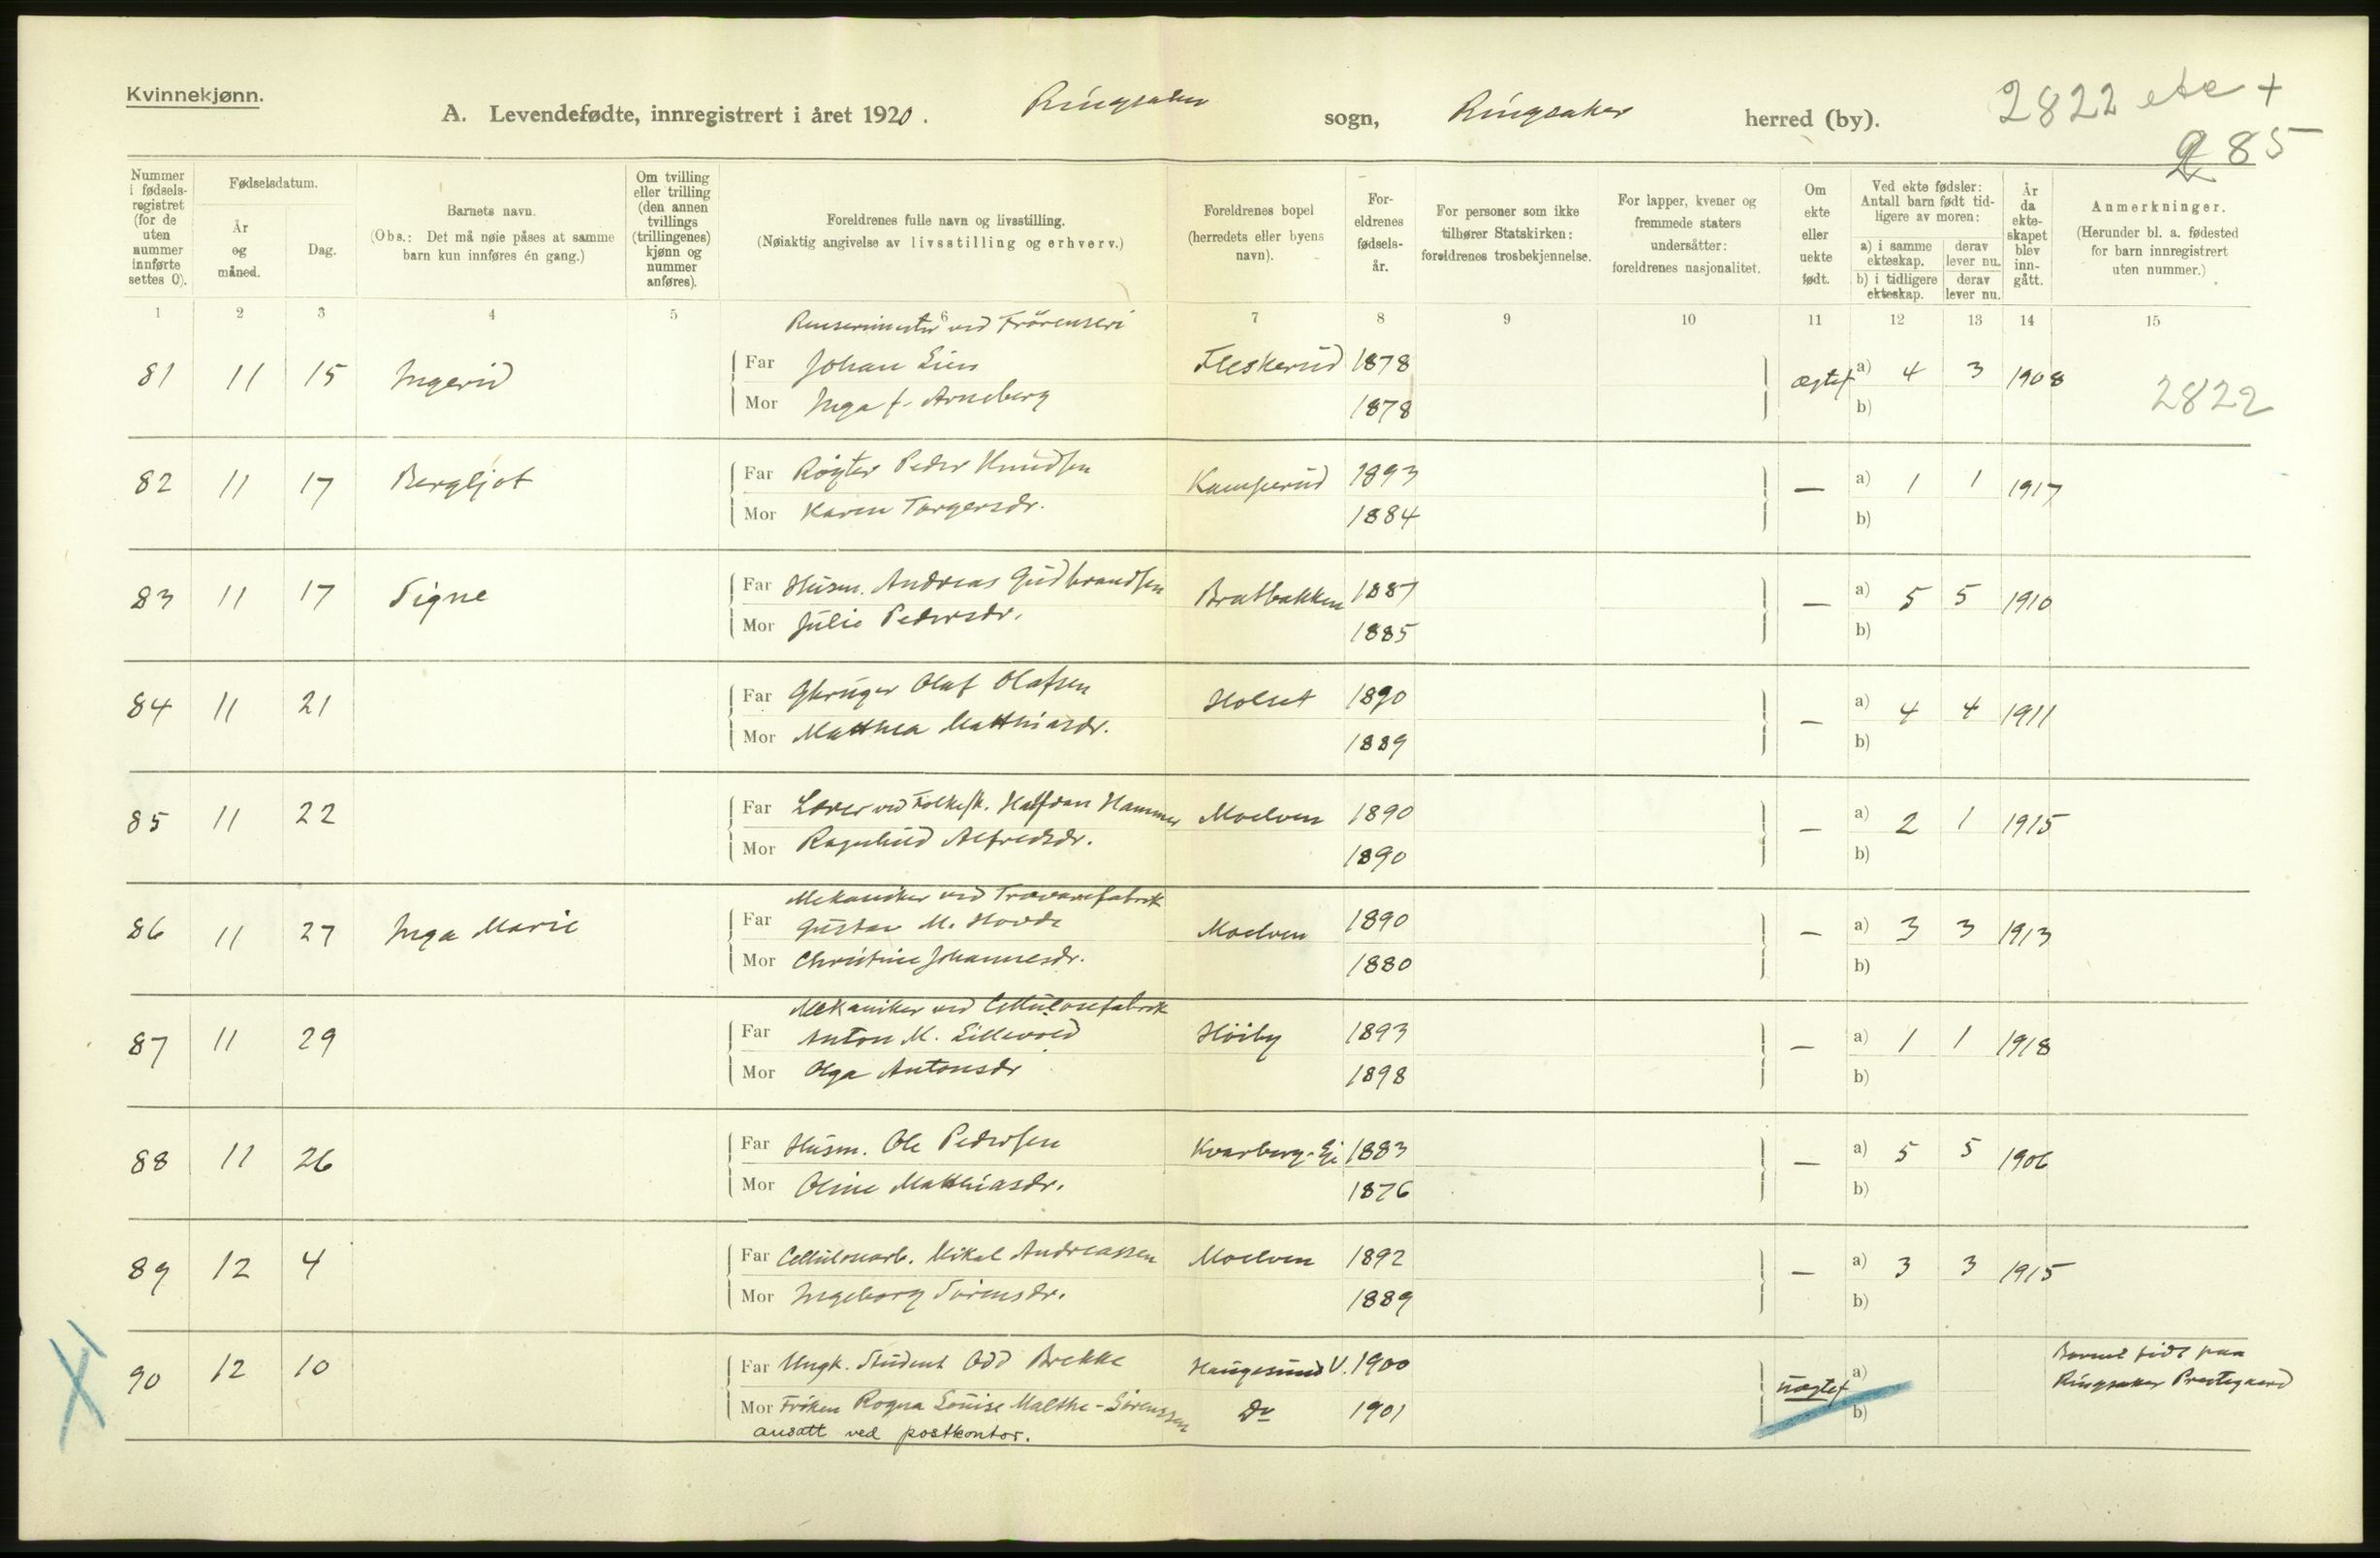 Kvinnekjønn.
A. Levendefødte, innregistrert i året 1920. Ringsaker sogn, Ringsaker herred (by).
2822 etc +
285
Nummer i fødsels-registret (for de uten nummer innførte settes 0).
Fødselsdatum.
År og måned.
Dag.
Barnets navn.
(Obs.: Det må nøie påses at samme barn kun innføres én gang.)
Om tvilling eller trilling (den annen tvillings (trillingenes) kjønn og nummer anføres).
Foreldrenes fulle navn og livsstilling.
(Nøiaktig angivelse av livsstilling og erhverv.)
Foreldrenes bopel (herredets eller byens navn).
For-eldrenes fødsels-år.
For personer som ikke tilhører Statskirken: foreldrenes trosbekjennelse.
For lapper, kvener og fremmede staters undersåtter: foreldrenes nasjonalitet.
Om ekte eller uekte født.
Ved ekte fødsler: Antall barn født tid-ligere av moren:
a) i samme ekteskap. derav lever nu.
b) i tidligere ekteskap. derav lever nu.
År da ekte-skapet blev inn-gått.
Anmerkninger.
(Herunder bl. a. fødested for barn innregistrert uten nummer.)
1 2 3 4 5 6 7 8 9 10 11 12 13 14 15
ved Frörenseri
81 11 15 Ingerid Far Johan Lien Fleskerud 1878 ægtef a) 4 3 1908
Mor Inga f. Arneberg 1878 b) 2822
82 11 17 Bergljot Far Røgter Peder Knudsen Kamperud 1893 — a) 1 1 1917
Mor Karen Torgersdr. 1884 b)
83 11 17 Signe Far Husm. Andreas Gudbrandsen Bratbakken 1887 — a) 5 5 1910
Mor Julie Pedersdr. 1885 b)
84 11 21 Far Olaf Olafsen Holset 1890 — a) 4 4 1911
Mor Matthea Matthiasdr. 1889 b)
85 11 22 Far Lærer ved Folkesk. Halfdan Hammer Moelven 1890 — a) 2 1 1915
Mor Ragnhild Alfredsdr. 1890 b)
Mekaniker ved Trævarefabrik
86 11 27 Inga Marie Far Gustav M. Hovde Moelven 1890 — a) 3 3 1913
Mor Christine Johannesdr. 1880 b)
Mekaniker ved Cellulosefabrik
87 11 29 Far Anton M. Lillevold Höiby 1893 — a) 1 1 1918
Mor Olga Antonsdr 1898 b)
88 11 26 Far Husm. Ole Pedersen Kvarberg-Ei 1883 — a) 5 5 1906
Mor Oline Matthiasdr. 1876 b)
89 12 4 Far Cellulosearb. Mikal Andreassen Moelven 1892 — a) 3 3 1915
Mor Ingeborg Sørensdr. 1889 b)
90 12 10 Far Ungk. Student Odd Brekke Haugesund V. 1900 uægtef a) Barnet född paa
Ringsaker Prestegaard
Mor Fröken Ragna Louise Malthe-Sørenssen Do 1901 b)
ansatt ved postkontor.